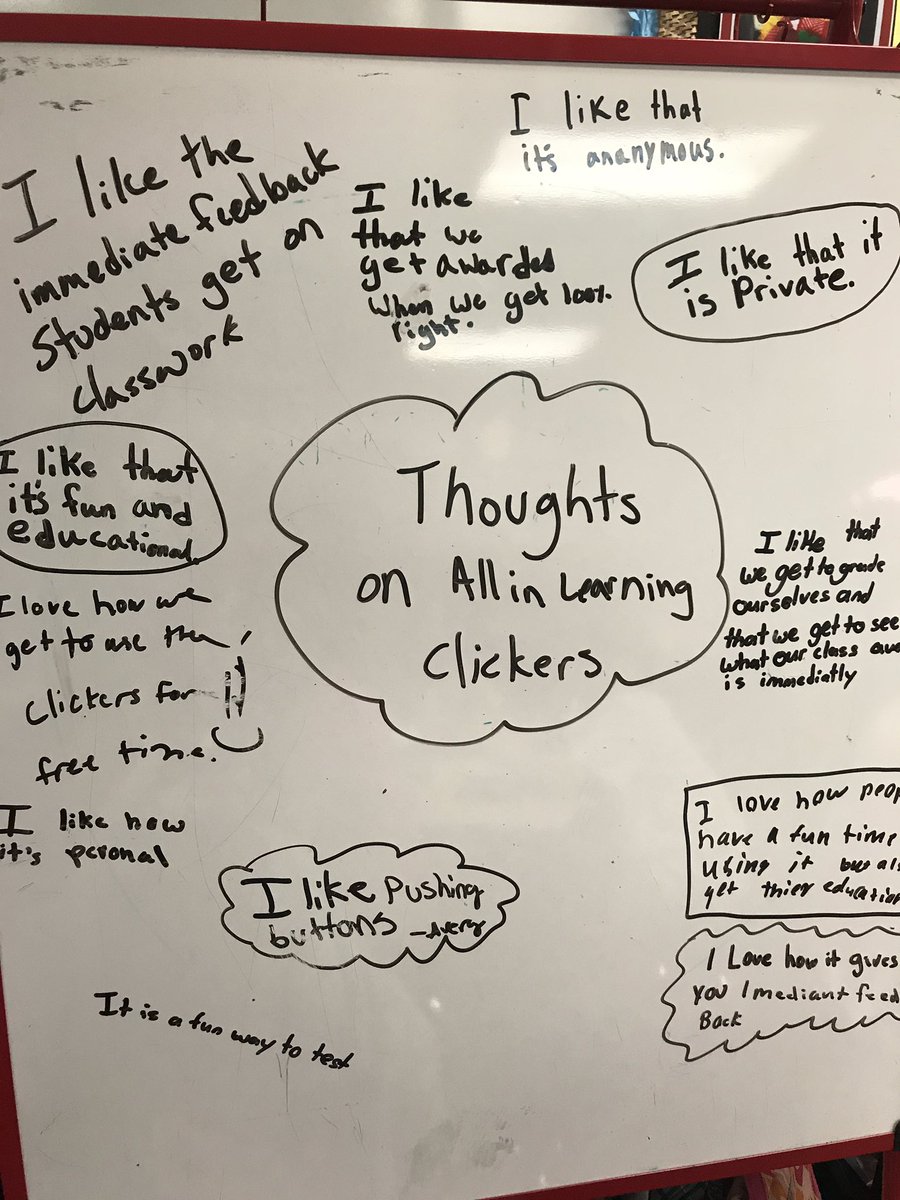 I like that
it's ananymous.
I like the
immediate feedback
Students get on
classwork
I like
that we
get awarded
When we get 100%
right.
I like that it
is Private.
Thoughts
on All in Learning
Clickers
I like that
it's fun and
educational.
I like that
we get to grade
ourselves and
that we get to see
what our class
is immediatly
I love how we
get to use the
clickers for
free time.
I like how
it's personal
I like Pushing
buttons -Avery
I love how
have a fun time
using it
get thier
I Love how it gives
you Imediant
Back
It is a fun way to test